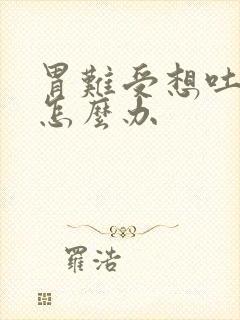 胃難受想吐
怎麼办
羅浩